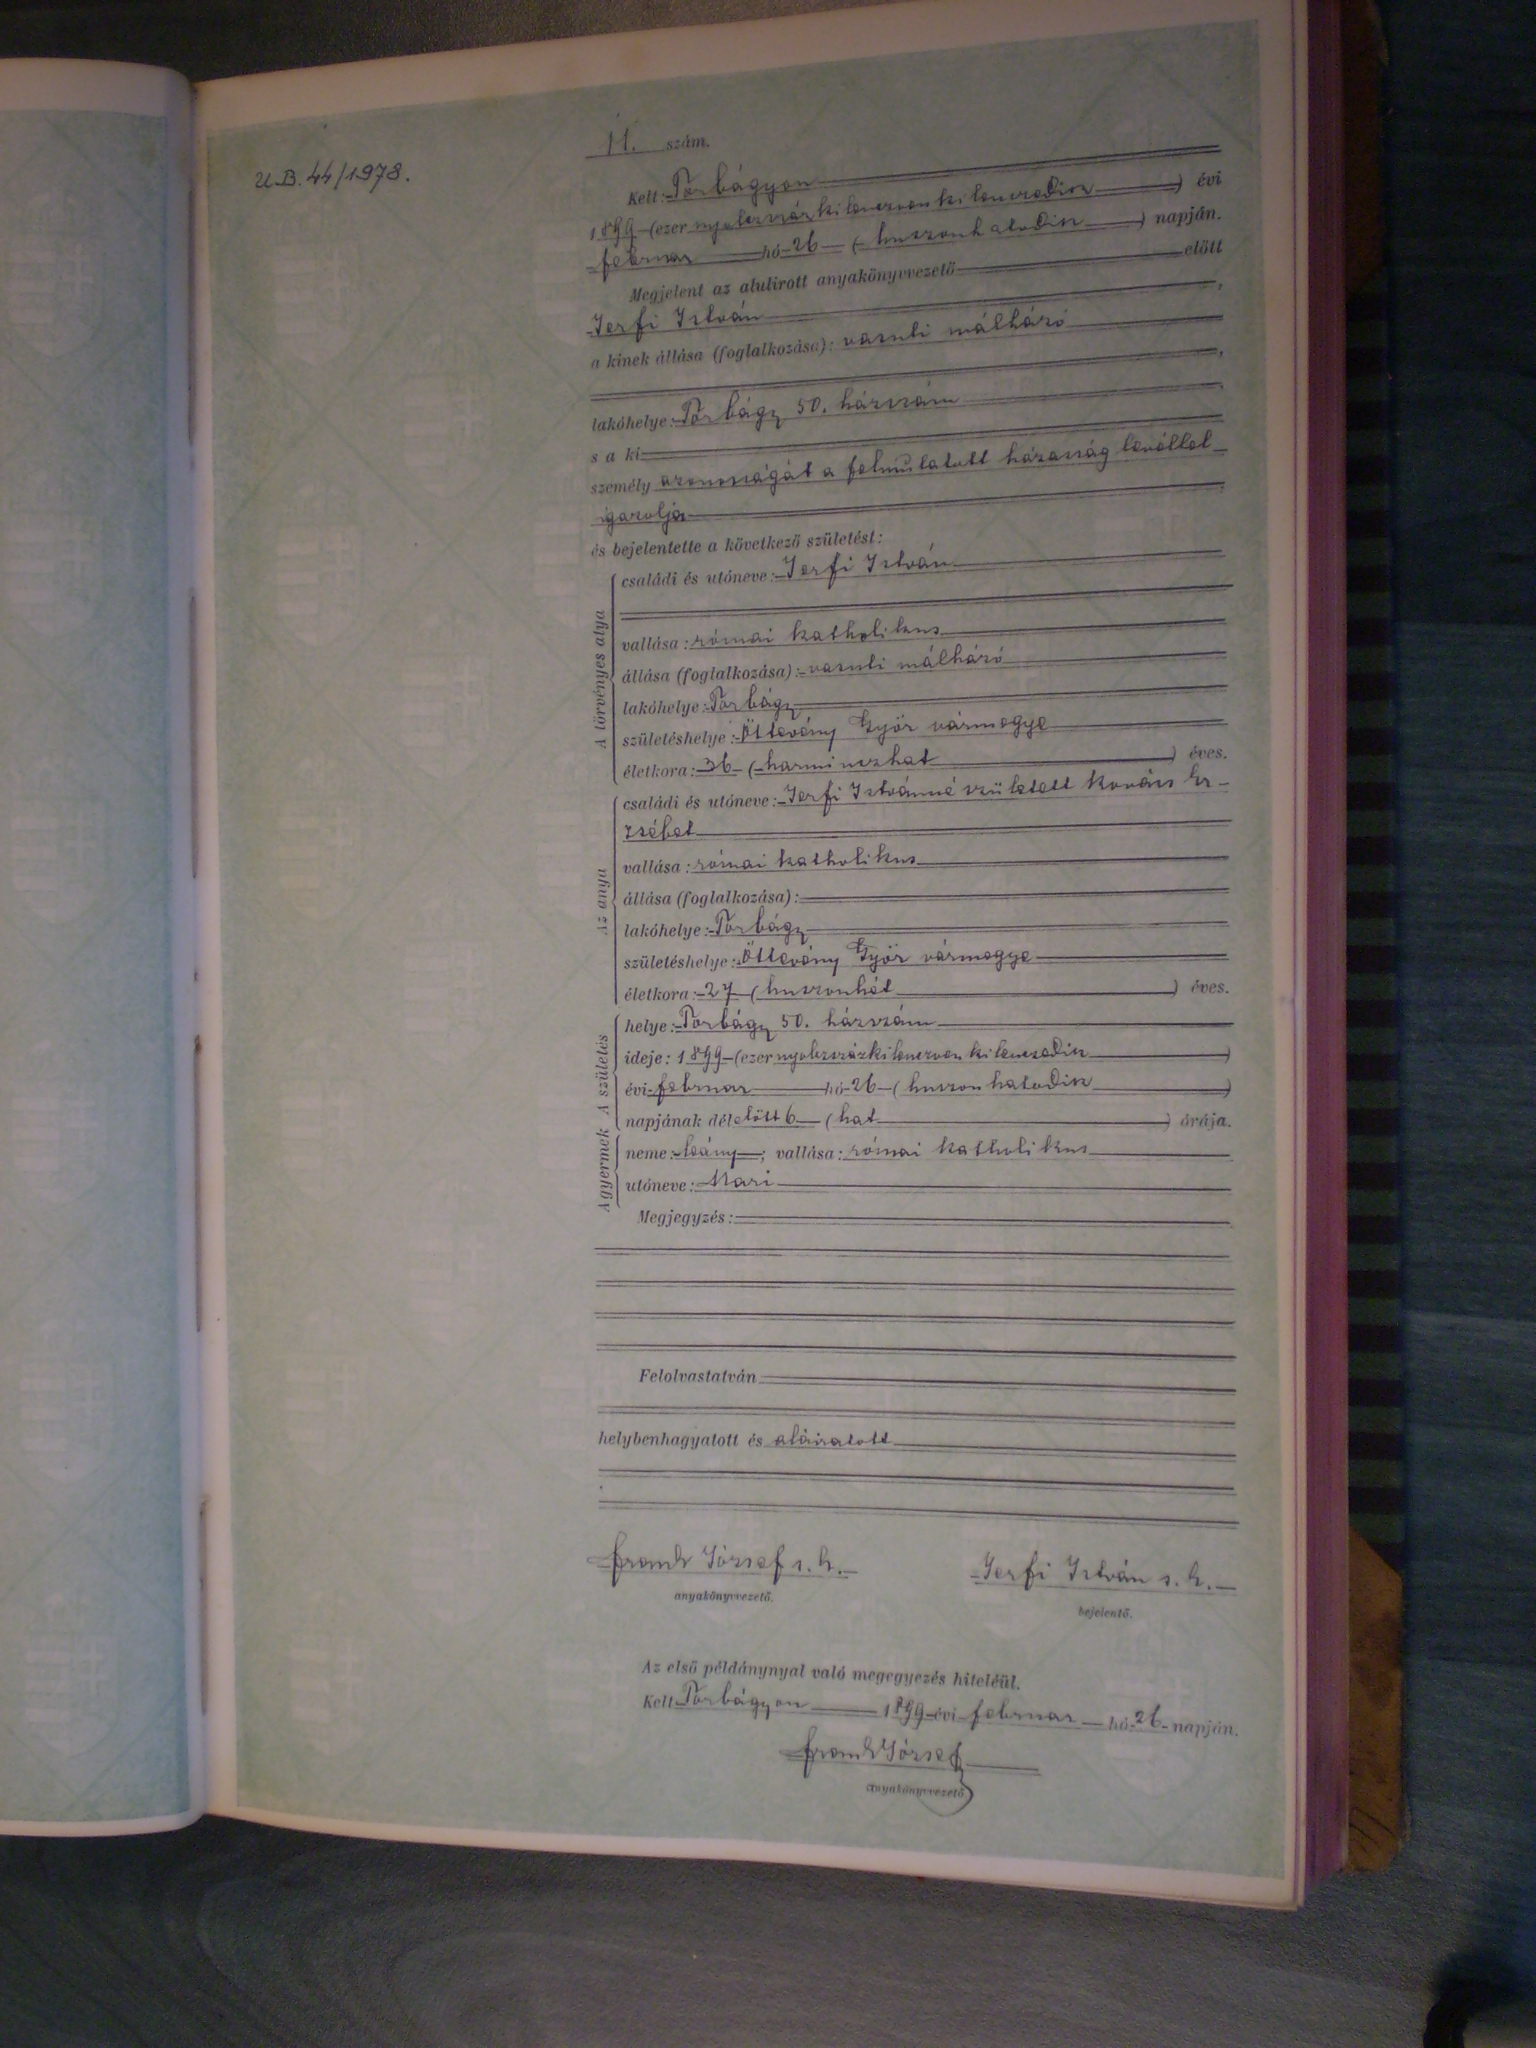 U.B. 44/1978.
11. szám.
Kelt: Torbágyon
1899 (ezer nyolczszázkilenczvenkilenczedik) évi
februar hó 26 (huszonhatodik) napján.
Megjelent az alulirott anyakönyvvezető előtt
Terfi István,
a kinek állása (foglalkozása): vasuti málházó
,
lakóhelye: Torbágy 50. házszám
s a ki
személy azonosságát a felmutatott házasság levéllel
igazolja
és bejelentette a következő születést:
A törvényes atya
családi és utóneve: Terfi István
vallása: római katholikus
állása (foglalkozása): vasuti málházó
lakóhelye: Torbágy
születéshelye: Öttevény Győr vármegye
életkora: 36 (harminczhat) éves.
Az anya
családi és utóneve: Terfi Istvánné született Kovács Er-
zsébet
vallása: római katholikus
állása (foglalkozása):
lakóhelye: Torbágy
születéshelye: Öttevény Győr vármegye
életkora: 27 (huszonhét) éves.
A születés
helye: Torbágy 50. házszám
ideje: 1899 (ezer nyolczszázkilenczvenkilenczedik)
évi februar hó 26 (huszonhatodik)
napjának délelőtt 6 (hat) órája.
A gyermek
neme: leány; vallása: római katholikus
utóneve: Mari
Megjegyzés:
Felolvastatván
helybenhagyatott és aláiratott
Frank József s. k. Terfi István s. k.
anyakönyvvezető. bejelentő.
Az első példánynyal való megegyezés hiteléül.
Kelt Torbágyon 1899 évi februar hó 26 napján.
Frank József
anyakönyvvezető